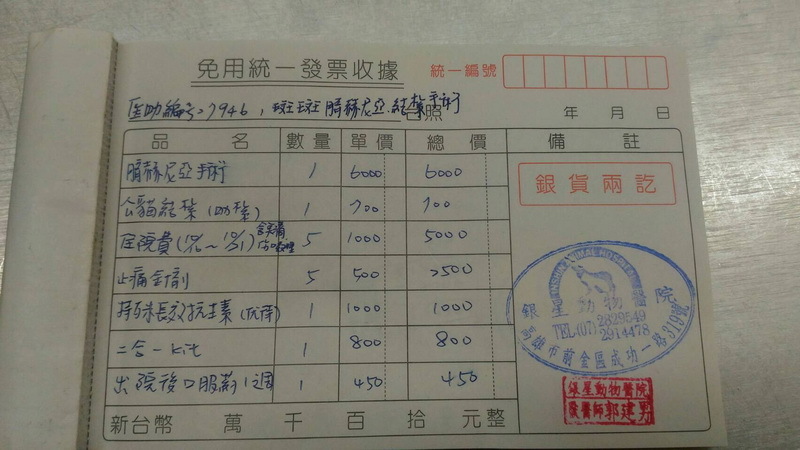 免用統一發票收據
統一編號
医助編号:7946,斑斑 臍赫尼亞.結紮手術
台照
年 月 日
品 名 數量 單價 總價 備註
臍赫尼亞手術 1 6000 6000
公貓結紮(助紮) 1 700 700
住院費(10/16~10/21) 5 1000 5000
止痛針劑 5 500 2500
特殊長效抗生素 1 1000 1000
二合一 kit 1 800 800
出院後口服葯1週 1 450 450
新台幣 萬 千 百 拾 元整
銀貨兩訖
銀星動物醫院
TEL:(07)2829549
2914478
高雄市前金區成功一路319號
銀星動物醫院
獸醫師郭建男